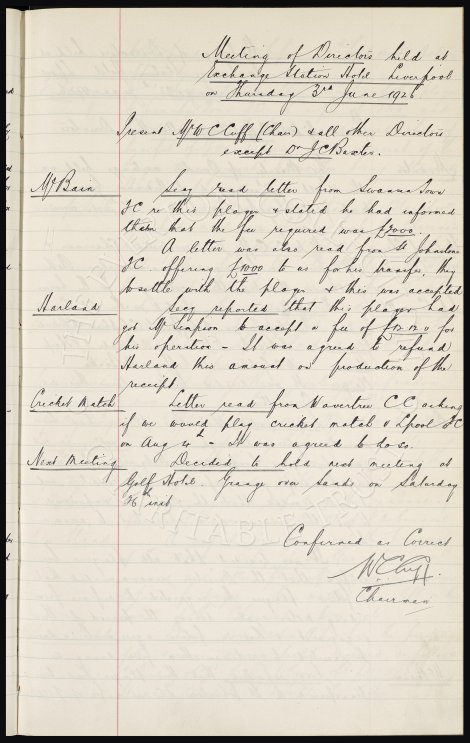 Meeting of Directors held at
Exchange Station Hotel Liverpool
on Thursday 3rd June 1926
Present Mr W C Cuff (Chair) & all other Directors
except Dr J C Baxter.
McBain
Secy read letter from Swansea Town
FC re this player & stated he had informed
them that the fee required was £2000.
A letter was also read from St Johnstone
FC. offering £1000 to us for his transfer, they
to settle with the player & this was accepted
Harland
Secy reported that this player had
got Mr Simpson to accept a fee of £12.12.0 for
his operation - It was agreed to refund
Harland this amount on production of the
receipt
Cricket Match
Letter read from Wavertree C C. asking
if we would play cricket match v Lpool FC
on Aug 4th - It was agreed to do so.
Next Meeting
Decided to hold next meeting at
Golf Hotel. Grange over Sands on Saturday
26th inst
Confirmed as Correct
W C Cuff.
Chairman